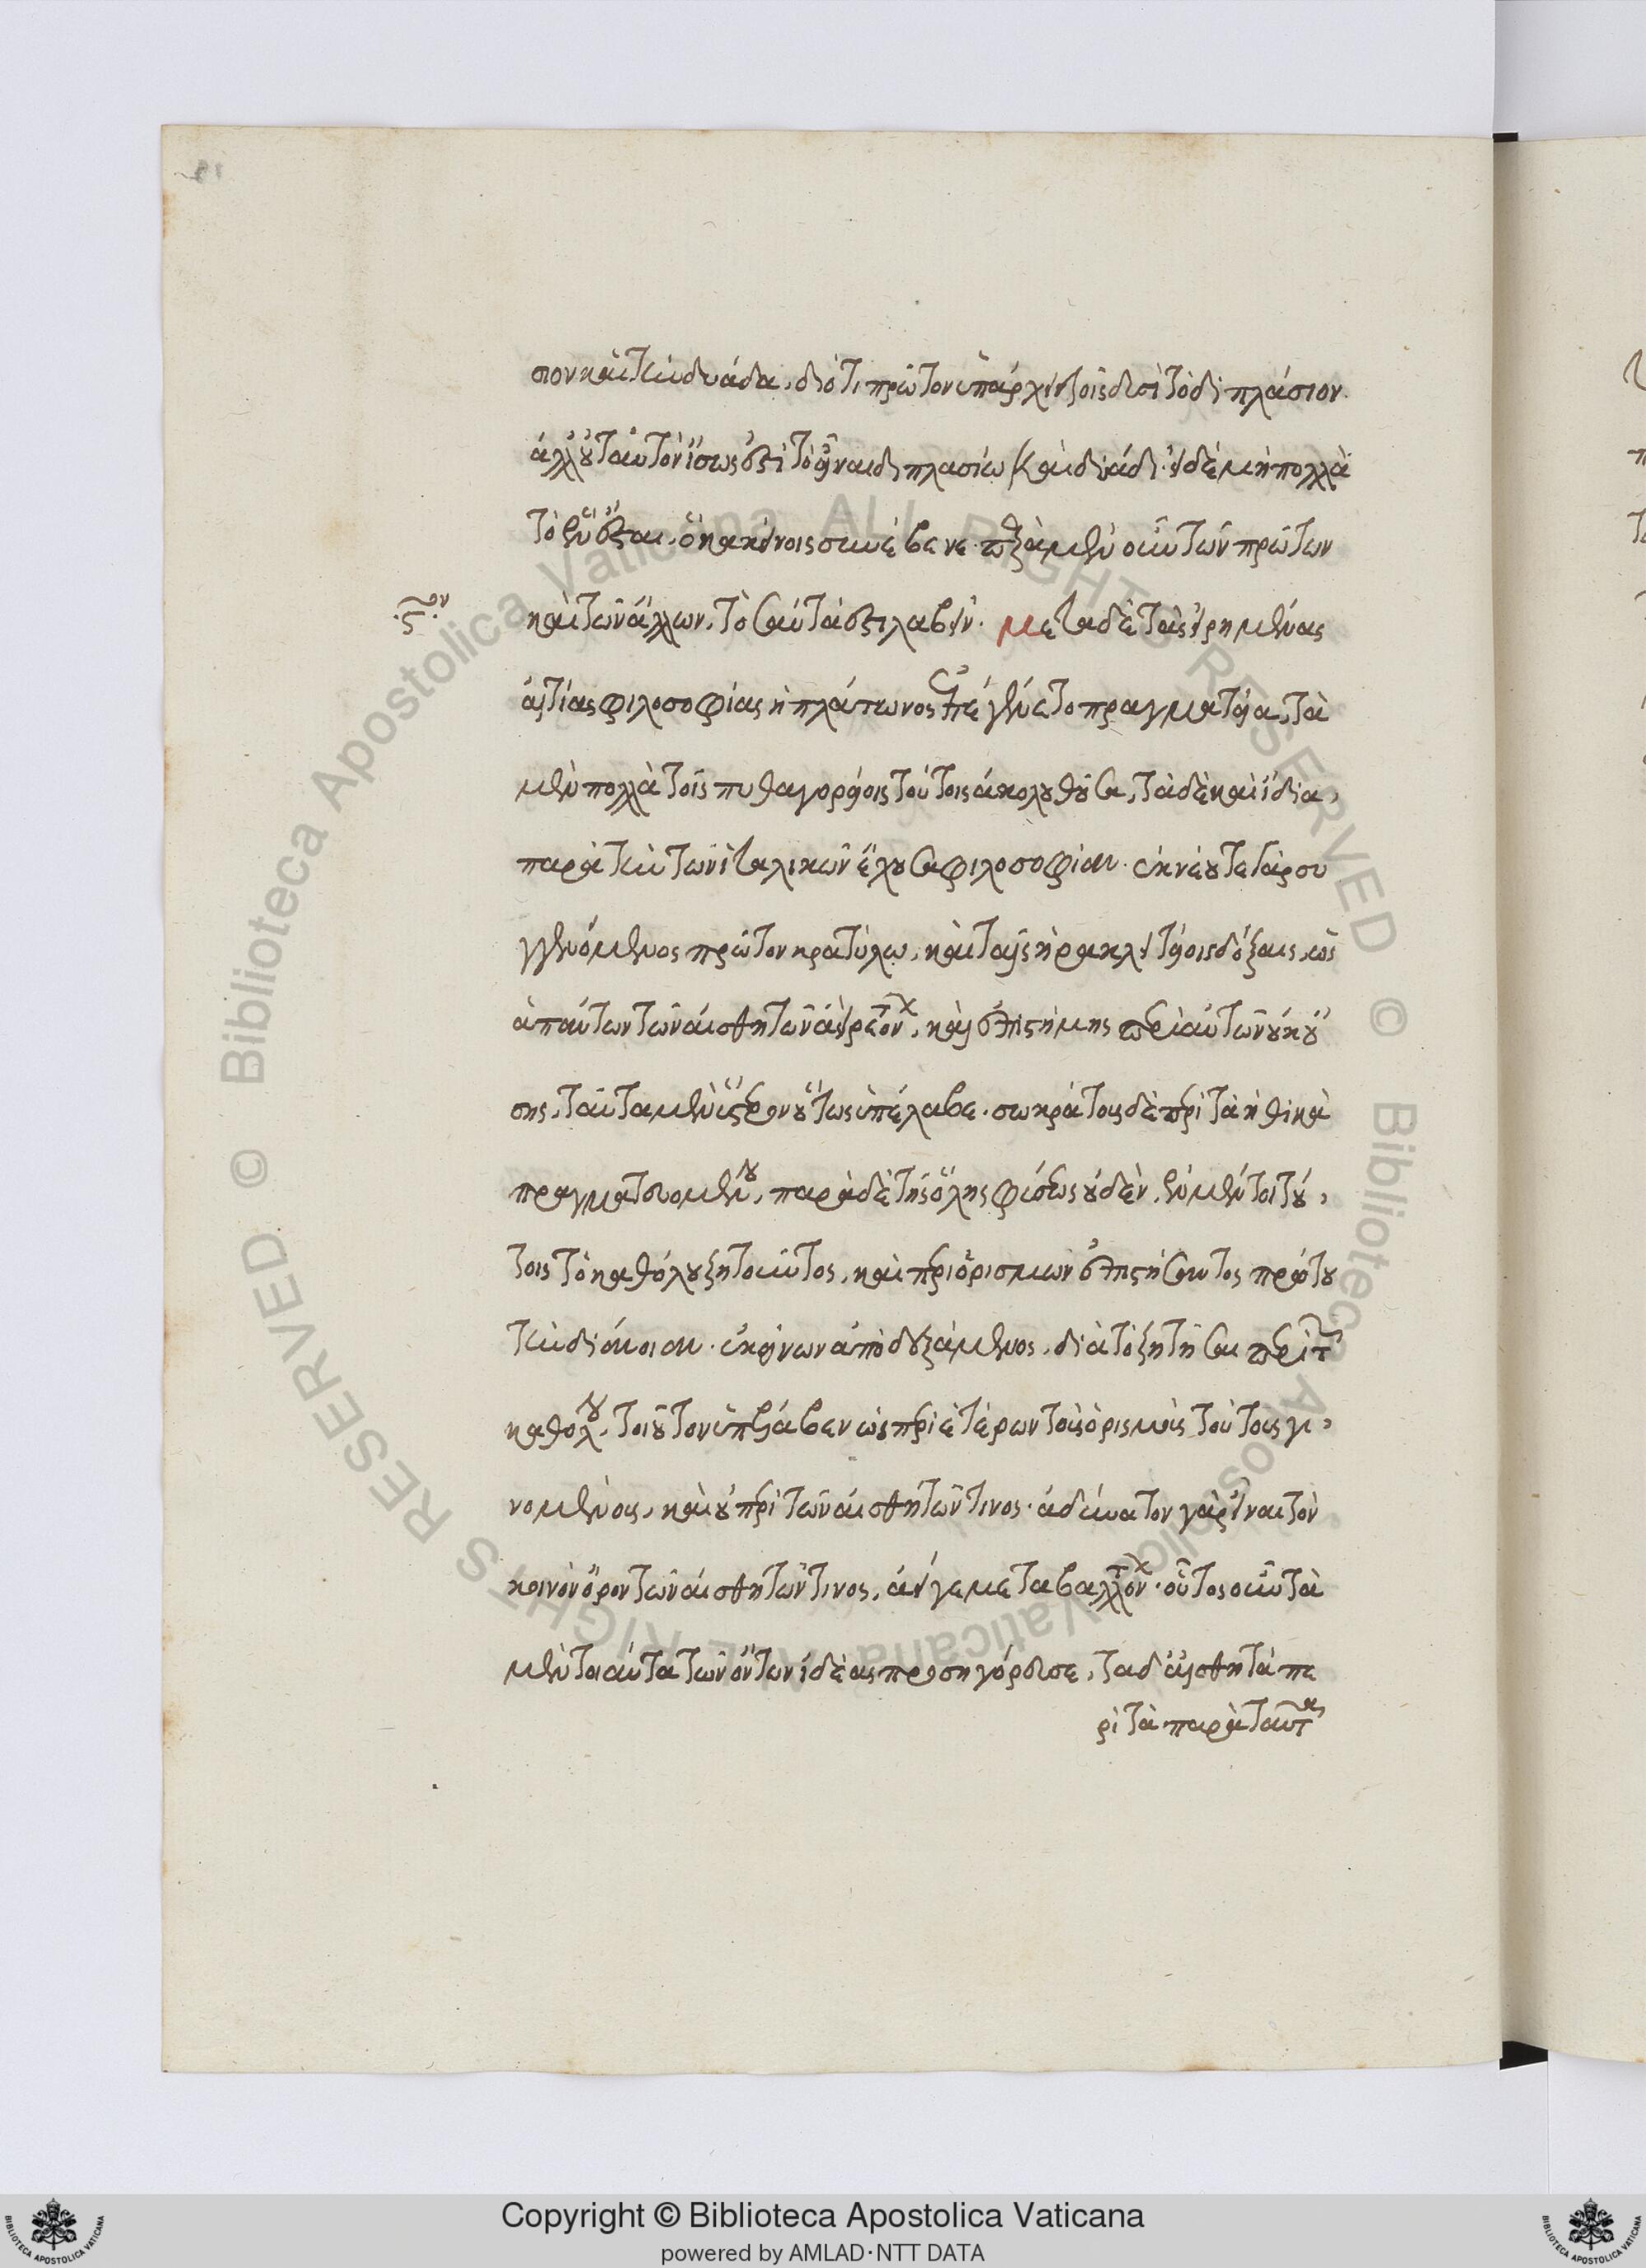 σιον καὶ τὴν δυάδα, διότι πρῶτον ὑπάρχει τοῖς δυσὶ τὸ διπλάσιον.
ἀλλ' οὐ ταὐτὸν ἴσως ἐστὶ τὸ εἶναι διπλασίω καὶ δυάδι· εἰ δὲ μὴ πολλὰ
τὸ ἓν ἔσται, ὃ κἀκείνοις συνέβαινε. παρὰ μὲν οὖν τῶν πρώτων
.ς.ον
καὶ τῶν ἄλλων, τοσαῦτά ἐστι λαβεῖν. μετα δὲ τὰς εἰρημένας
αἰτίας φιλοσοφίας ἡ πλάτωνος ἐπεγένετο πραγματεία, τὰ
μὲν πολλὰ τοῖς πυθαγορείοις τούτοις ἀκολουθοῦσα, τὰ δὲ καὶ ἴδια,
παρὰ τὴν τῶν ἰταλικῶν ἔχουσα φιλοσοφίαν. ἐκ νέου τε γάρ συ
γγενόμενος πρῶτον κρατύλω, καὶ ταῖς ἡρακλειτείοις δόξαις, ὡς
ἁπάντων τῶν αἰσθητῶν ἀεὶ ρεόντων, καὶ ἐπιστήμης περὶ αὐτῶν οὐκ οὔ
σης, ταῦτα μὲν ὕστερον οὕτως ὑπέλαβε. σωκράτους δὲ περὶ τὰ ἠθικὰ
πραγματευομένου, παρὰ δὲ τῆς ὅλης φύσεως οὐδὲν, ἐν μέντοι τού,
τοις τὸ καθόλου ζητοῦντος, καὶ περὶ ὁρισμῶν ἐπιστήσαντος πρώτου
τὴν διάνοιαν. ἐκείνων ἀποδεξάμενος, διὰ τὸ ζητῆσαι περὶ τῶν
καθόλου, τοιοῦτον ὑπέλαβεν ὡς περὶ ἑτέρων τοὺς ὁρισμοὺς τούτους γι,
νομένους, καὶ οὐ περὶ τῶν αἰσθητῶν τινος. ἀδύνατον γὰρ εἶναι τὸν
κοινὸν ὅρον τῶν αἰσθητῶν τινος, ἀεί γε μεταβαλλόντων. οὗτος οὖν τὰ
μὲν τοιαῦτα τῶν ὄντων ἰδέας προσηγόρευσε, τα δ' αἰσθητὰ πε
ρὶ τὰ παρὰ ταῦτα
Copyright © Biblioteca Apostolica Vaticana
powered by AMLAD·NTT DATA